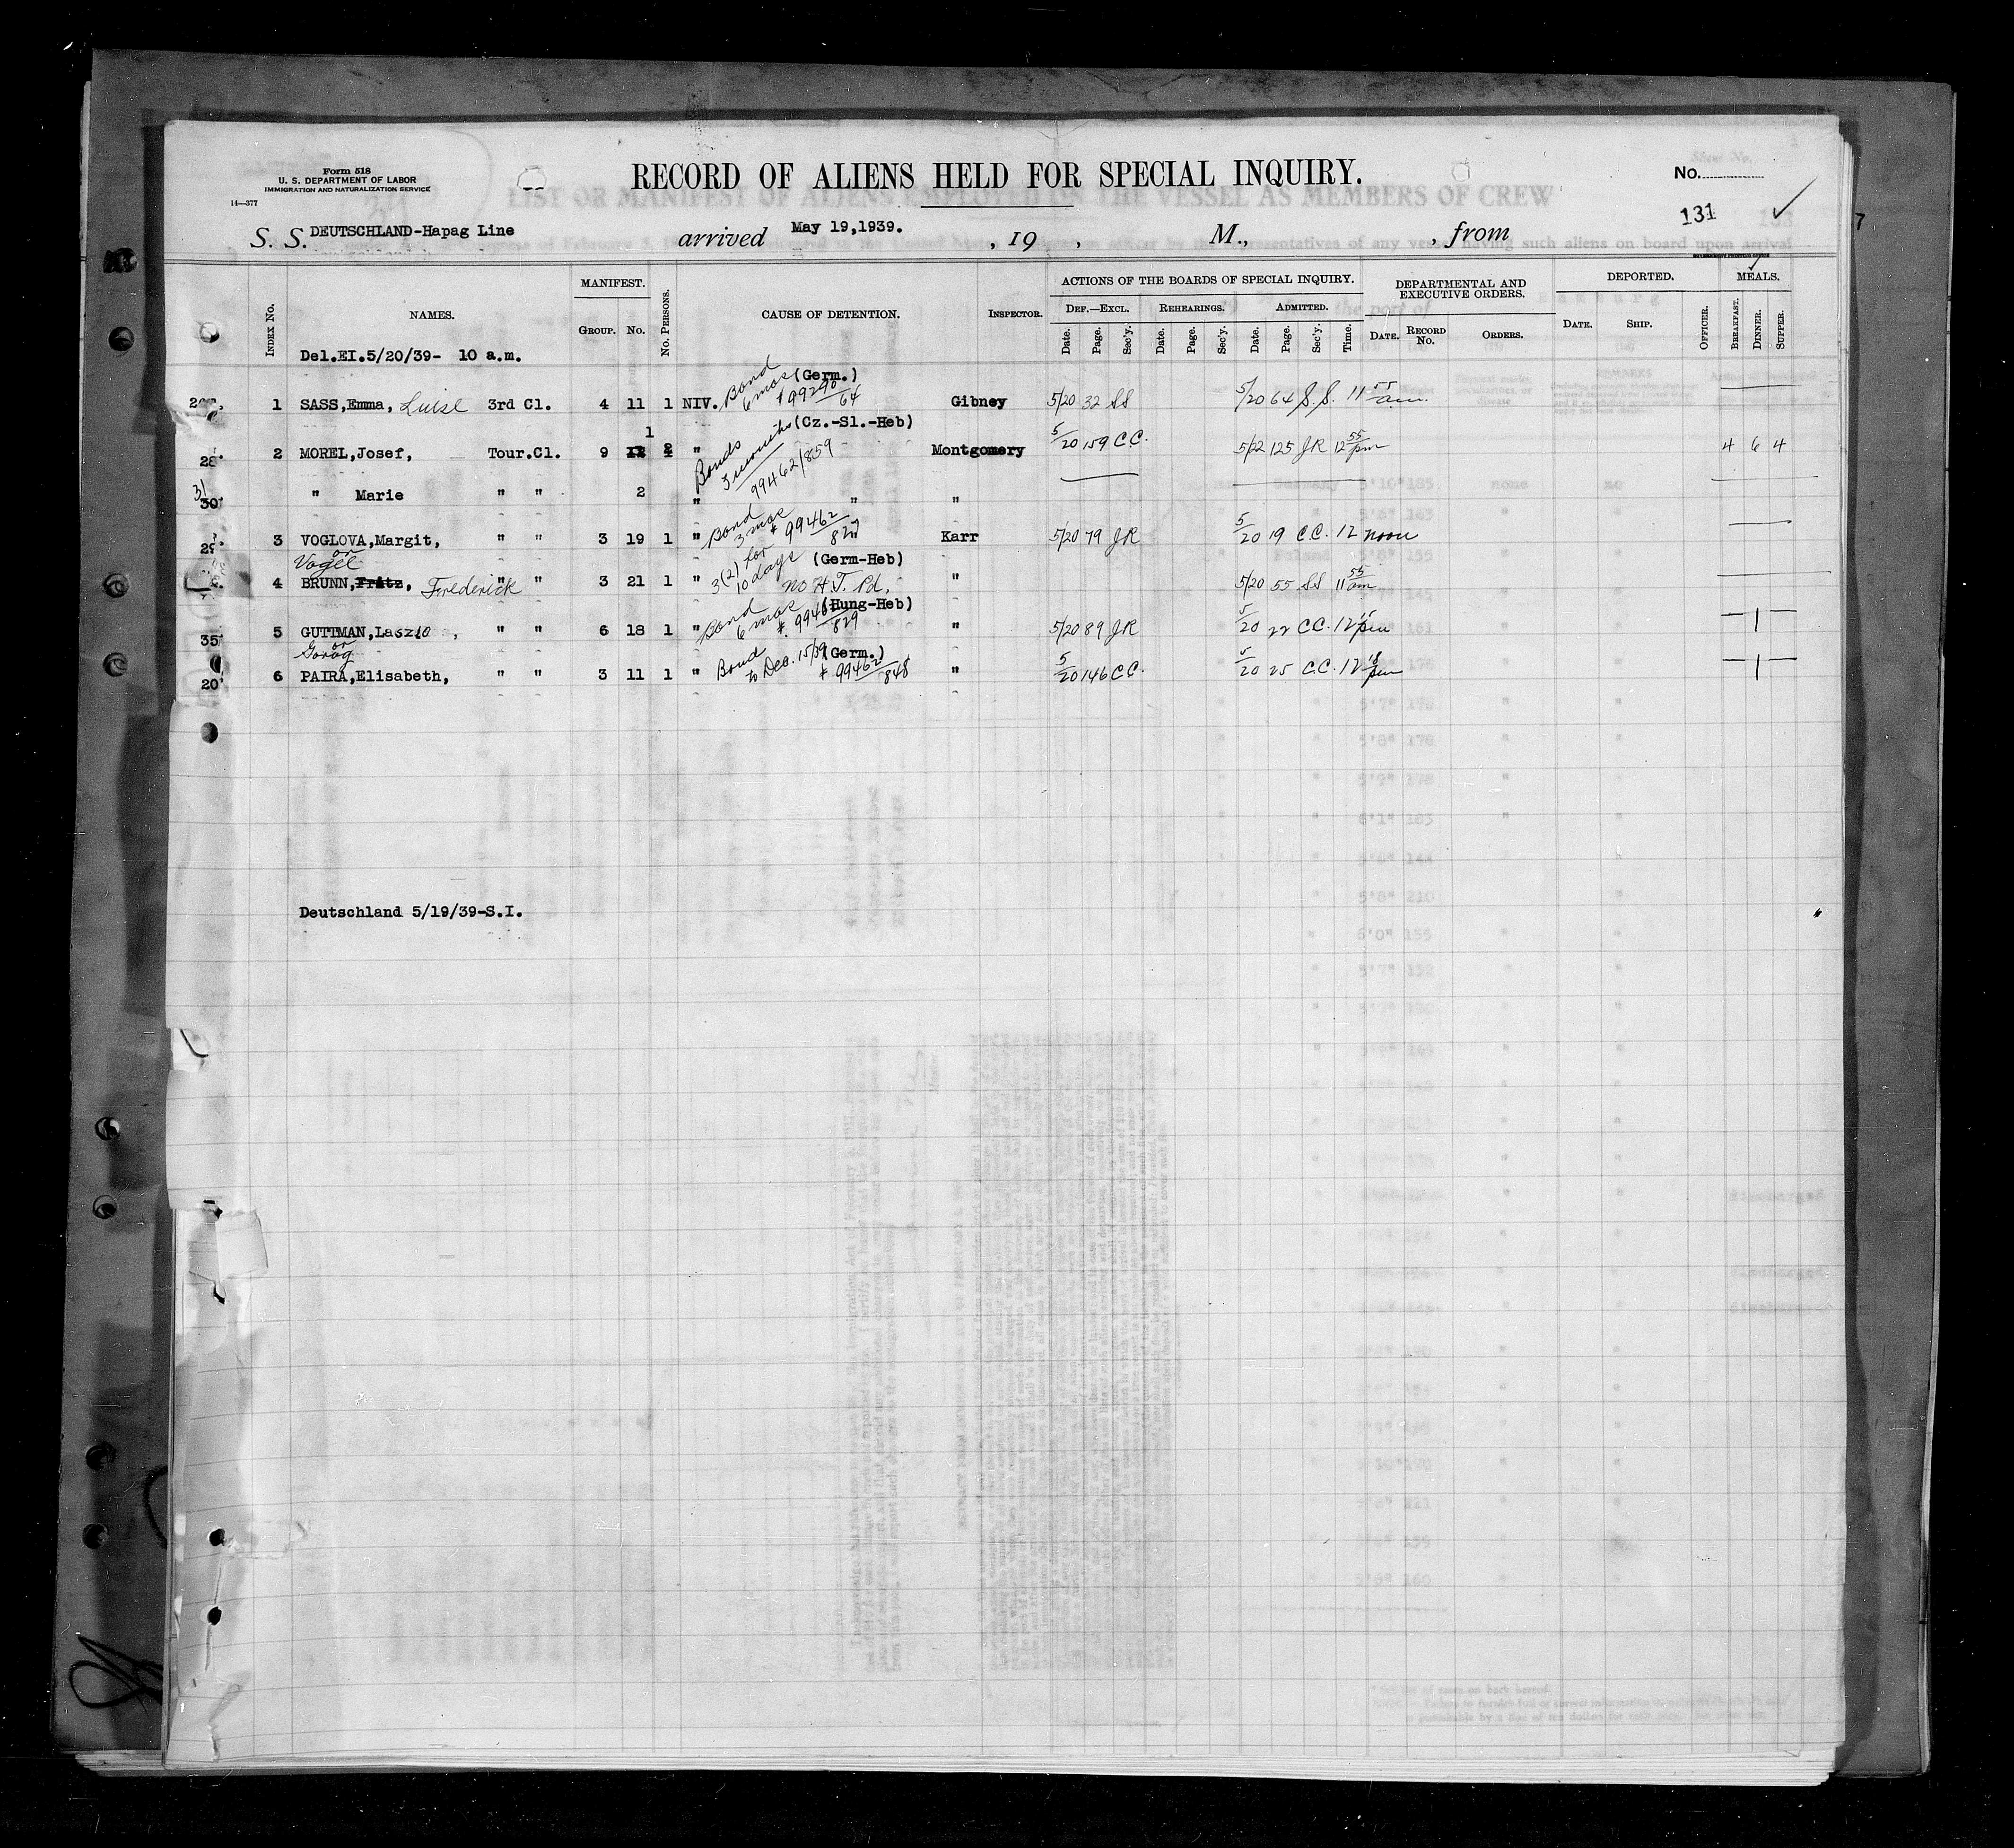 Form 518
U. S. DEPARTMENT OF LABOR
IMMIGRATION AND NATURALIZATION SERVICE
14—377
RECORD OF ALIENS HELD FOR SPECIAL INQUIRY.
No.
131
S. S. DEUTSCHLAND-Hapag Line arrived May 19,1939. , 19 , M., , from
INDEX No. NAMES. MANIFEST. GROUP. No. No. PERSONS. CAUSE OF DETENTION. INSPECTOR. ACTIONS OF THE BOARDS OF SPECIAL INQUIRY. DEPARTMENTAL AND EXECUTIVE ORDERS. DEPORTED. MEALS.
DEF.—EXCL. REHEARINGS. ADMITTED.
Date. Page. Sec'y. Date. Page. Sec'y. Date. Page. Sec'y. Time. DATE. RECORD No. ORDERS. DATE. SHIP. OFFICER. BREAKFAST. DINNER. SUPPER.
Del.EI.5/20/39- 10 a.m.
1 SASS,Emma, Luise 3rd Cl. 4 11 1 NIV. Bond 6 mos (Germ.) #99290/64 Gibney 5/20 32 SS 5/20 64 S.S. 11 55 am.
28 2 MOREL,Josef, Tour.Cl. 9 1 2 " Bonds 3 months (Cz.-Sl.-Heb) 99462/859 Montgomery 5/20 159 C.C. 5/22 125 JR 12 55 pm 4 6 4
31 30 " Marie " " 2 " " "
29 3 VOGLOVA,Margit, " " 3 19 1 " Bond 3 mos # 99462/827 " Karr 5/20 79 JR 5/20 19 C.C. 12 noon
or Vogel
4 BRUNN,Fritz, Frederick " " 3 21 1 " 3(2) for 10 days (Germ-Heb) no H.T. Pd. " 5/20 55 SS 11 55 am
35 5 GUTTMAN,Laszlo, " " 6 18 1 " Bond 6 mos (Hung-Heb) # 99462/829 " 5/20 89 JR 5/20 22 C.C. 12 15 pm 1
or Gorog
20 6 PAIRA,Elisabeth, " " 3 11 1 " Bond to Dec. 15/39 (Germ.) # 99462/848 " 5/20 146 C.C. 5/20 25 C.C. 12 18 pm 1
Deutschland 5/19/39-S.I.